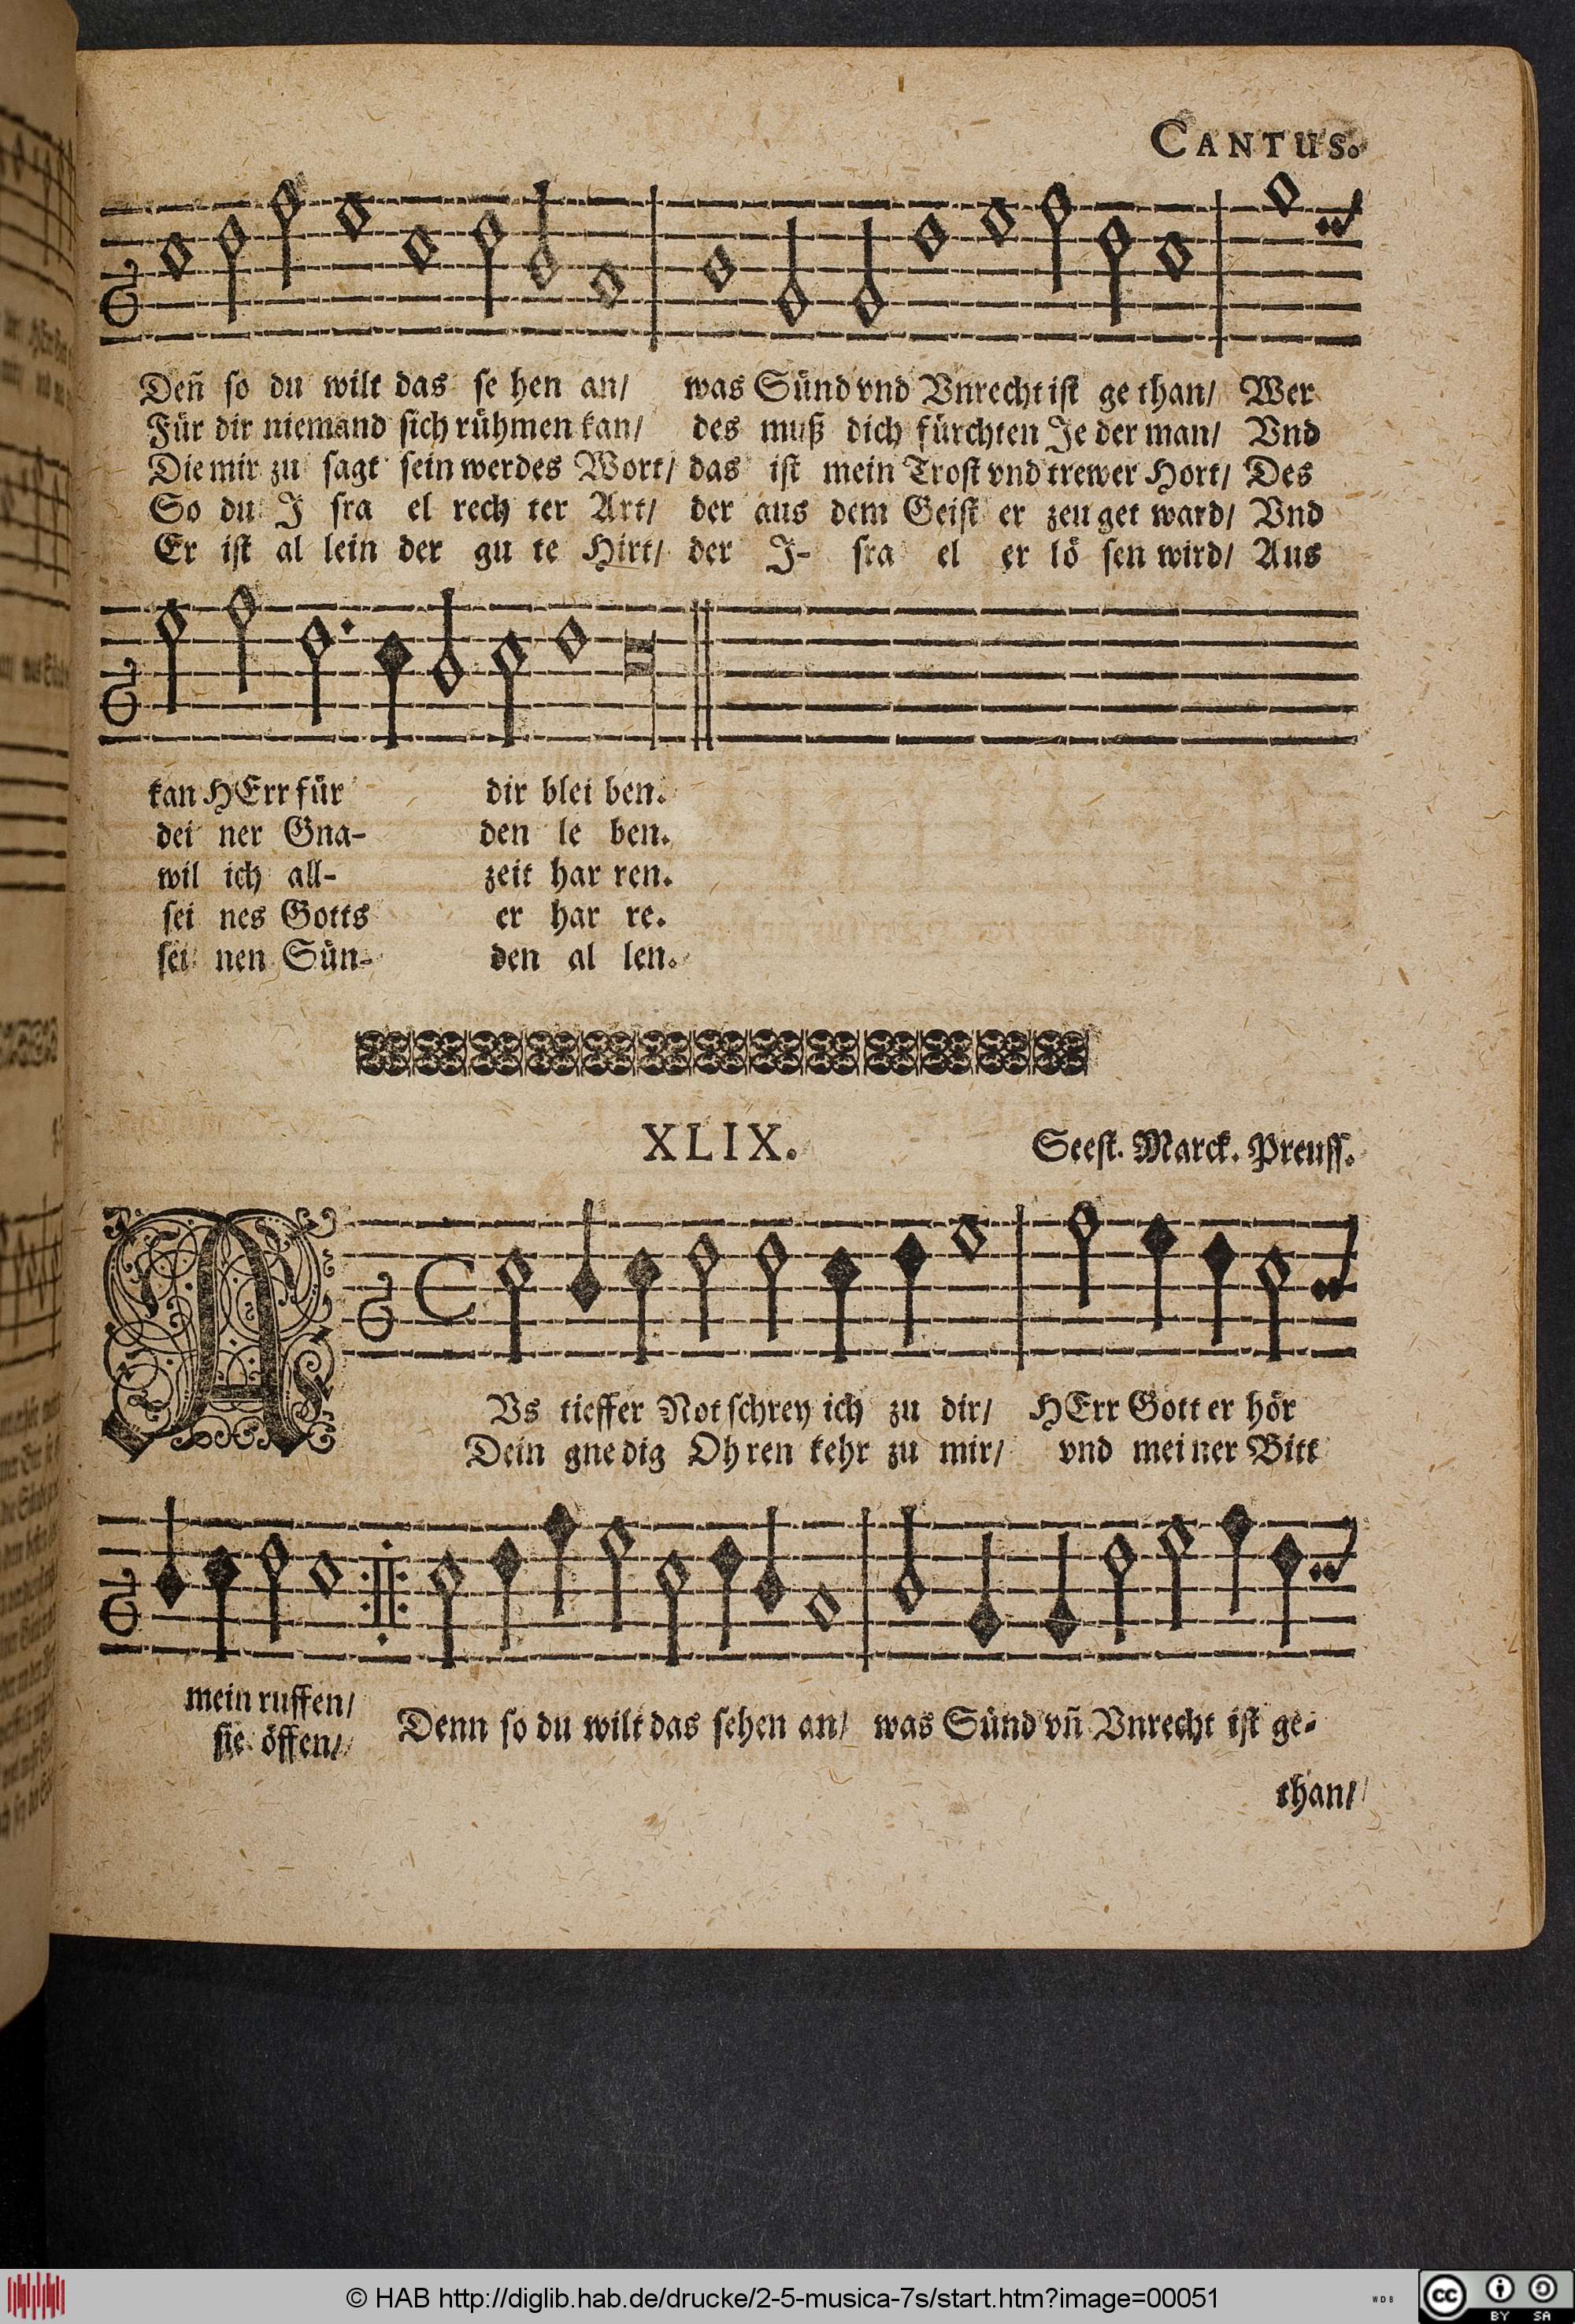 CANTUS.
Deñ so du wilt das se hen an/ was Sünd vnd Vnrecht ist ge than/ Wer
Für dir niemand sich rühmen kan/ des muß dich fürchten Je der man/ Vnd
Die mir zu sagt sein werdes Wort/ das ist mein Trost vnd trewer Hort/ Des
So du J sra el rech ter Art/ der aus dem Geist er zeu get ward/ Vnd
Er ist al lein der gu te Hirt/ der J- sra el er lö sen wird/ Aus
kan HErr für dir blei ben.
dei ner Gna- den le ben.
wil ich all- zeit har ren.
sei nes Gotts er har re.
sei nen Sün- den al len.
XLIX. Seest. Marck. Preuss.
AVs tieffer Not schrey ich zu dir/ HErr Gott er hör
Dein gne dig Oh ren kehr zu mir/ vnd mei ner Bitt
mein ruffen/
sie öffen/
Denn so du wilt das sehen an/ was Sünd vñ Vnrecht ist ge-
than/
© HAB http://diglib.hab.de/drucke/2-5-musica-7s/start.htm?image=00051
WDB
cc BY SA